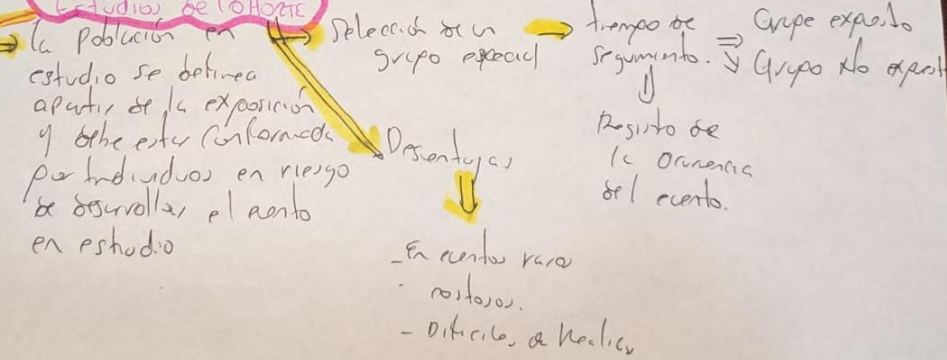 Estudios de COHORTE
la Población en
estudio se define a
apartir de la exposición
y debe estar conformada
por Individuos en riesgo
de desarrollar el evento
en estudio
Selección de un
grupo especial
tiempo de
seguimiento.
Grupo expuesto
Grupo No expuest
Registro de
la ocurrencia
del evento.
Desventajas
- En eventos raros
costosos.
- Dificiles de Realizar